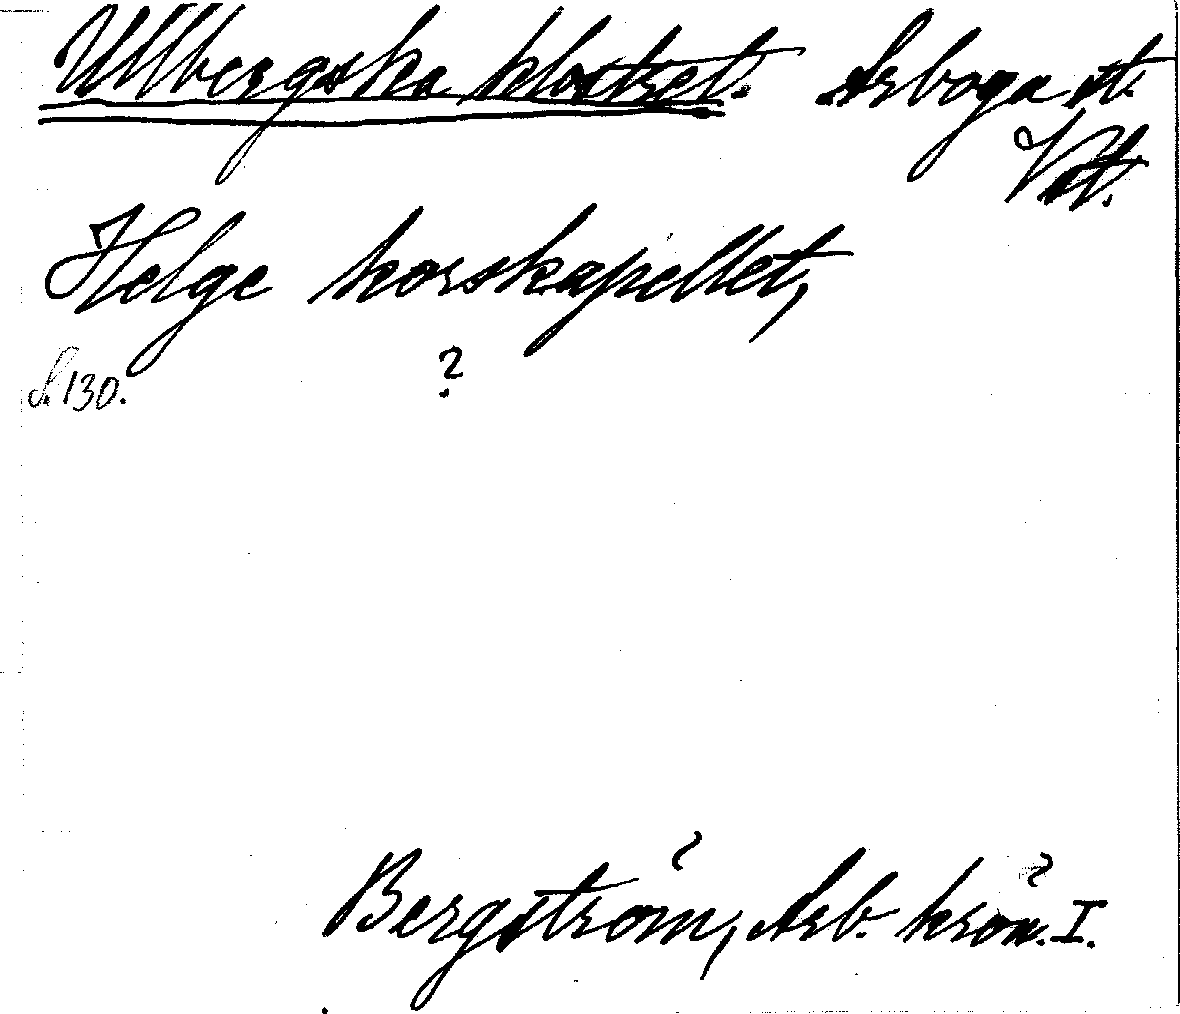 Ullbergska klostret. Arboga st.
Vstl.
Helge korskapellet,
S. 130. ?
Bergström, Arb. krön. I.